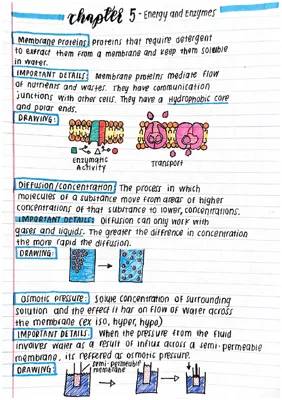 chapter 5 - Energy and Enzymes
Membrane Proteins: Proteins that require detergent
to extract them from a membrane and keep them soluble
in water.
IMPORTANT DETAILS: Membrane proteins mediate flow
of nutrients and wastes. They have communication
junctions with other cells. They have a Hydrophobic core
and polar ends.
DRAWING:
Enzymatic
Activity
Transport
Diffusion/concentration: The process in which
molecules of a substance move from areas of higher
concentrations of that substance to lower, concentrations.
IMPORTANT DETAILS: Diffusion can only work with
gases and liquids. The greater the difference in concentration
the more rapid the diffusion.
DRAWING:
Osmotic pressure: Solute concentration of surrounding
solution and the effect it has on flow of water across
the membrane (ex iso, hyper, hypo)
IMPORTANT DETAILS: When the pressure from the fluid
involves water as a result of influx across a semi-permeable
membrane, its reffered as osmotic pressure.
DRAWING:
semi-permeable
membrane